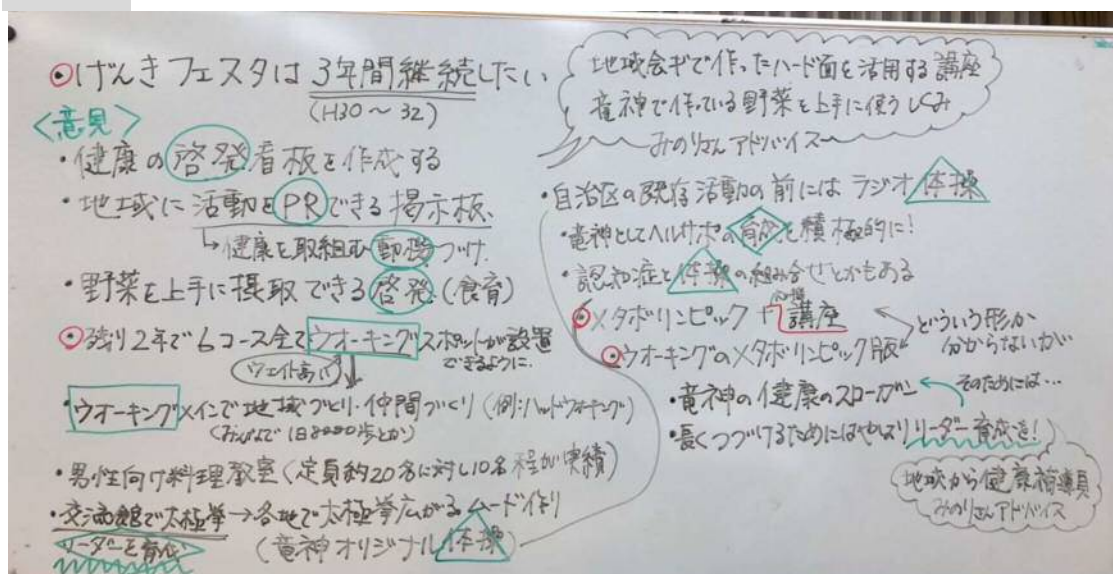 げんきフェスタは3年間継続したい
(H30～32)
<意見>
・健康の啓発看板を作成する
・地域に活動をPRできる掲示板、
↳健康を取組む動機づけ.
・野菜を上手に摂取できる啓発(食育)
残り2年で6コース全てウオーキングスポットが設置
できるように.
(ウェイト高い)
・ウオーキングメインで地域づくり・仲間づくり(例:ハッドウオーキング)
(みんなで1日8000歩とか)
・男性向け料理教室(定員約20名に対し10名程が実績)
・交流館で太極拳→各地で太極拳広がるムード作り
リーダーを育成
(竜神オリジナル体操)
地域会ギで作ったハード面を活用する講座
竜神で作っている野菜を上手に使うしくみ
みのりさんアドバイス
・自治区の既存活動の前にはラジオ体操
・竜神としてヘルサポの育成を積極的に!
・認知症と体操の組み合せとかもある
メタボリンピック+講座
ウオーキングのメタボリンピック版
どういう形か
分からないが…
・竜神の健康のスローガン
そのためには…
・長くつづけるためにはやはりリーダー育成を!
地域から健康指導員
みのりさんアドバイス